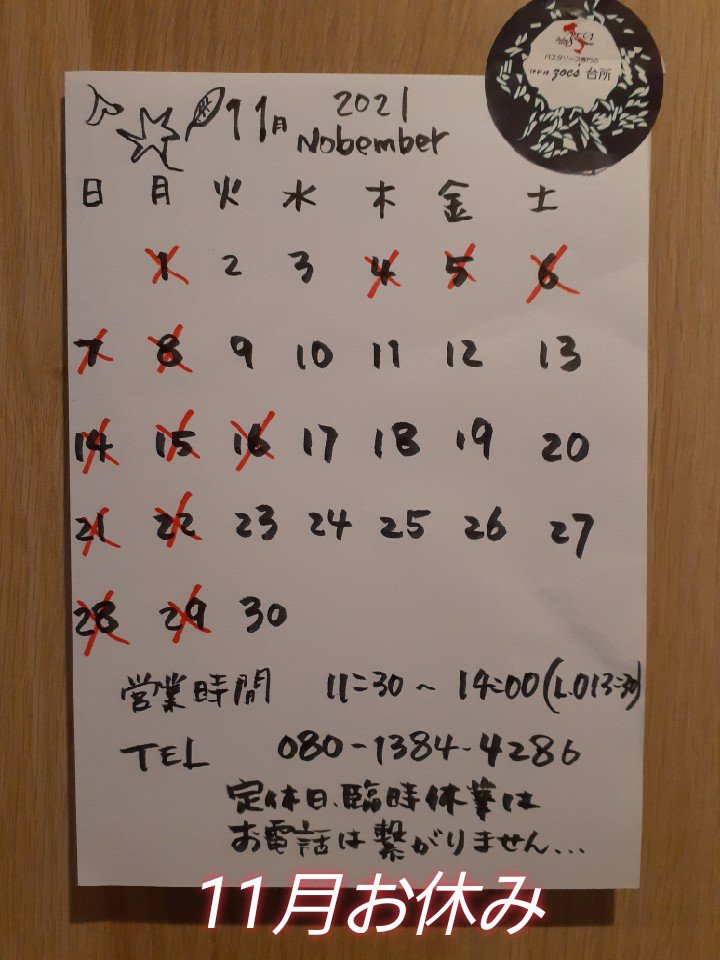 パスタソース専門店
zoe's 台所
11月
2021
Nobember
日 月 火 水 木 金 土
1 2 3 4 5 6
7 8 9 10 11 12 13
14 15 16 17 18 19 20
21 22 23 24 25 26 27
28 29 30
営業時間 11:30〜14:00(L.O13:30)
TEL 080-1384-4286
定休日、臨時休業は
お電話は繋がりません...
11月お休み